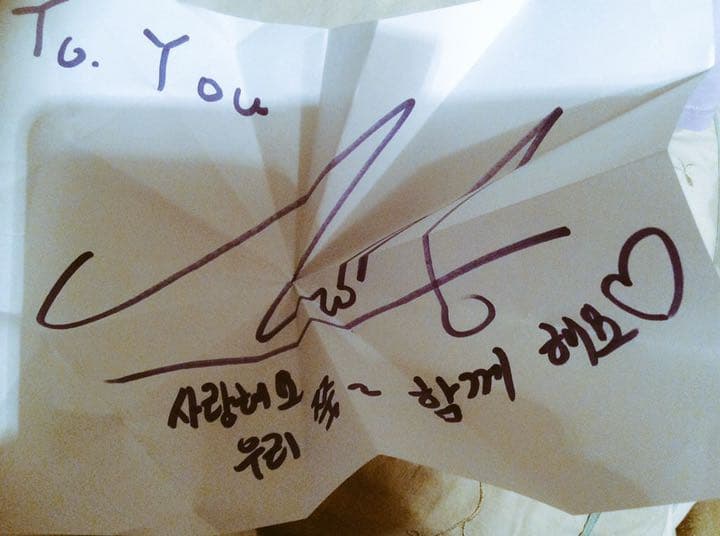 To. You
사랑해요
우리 쭉~ 함께 해요♡